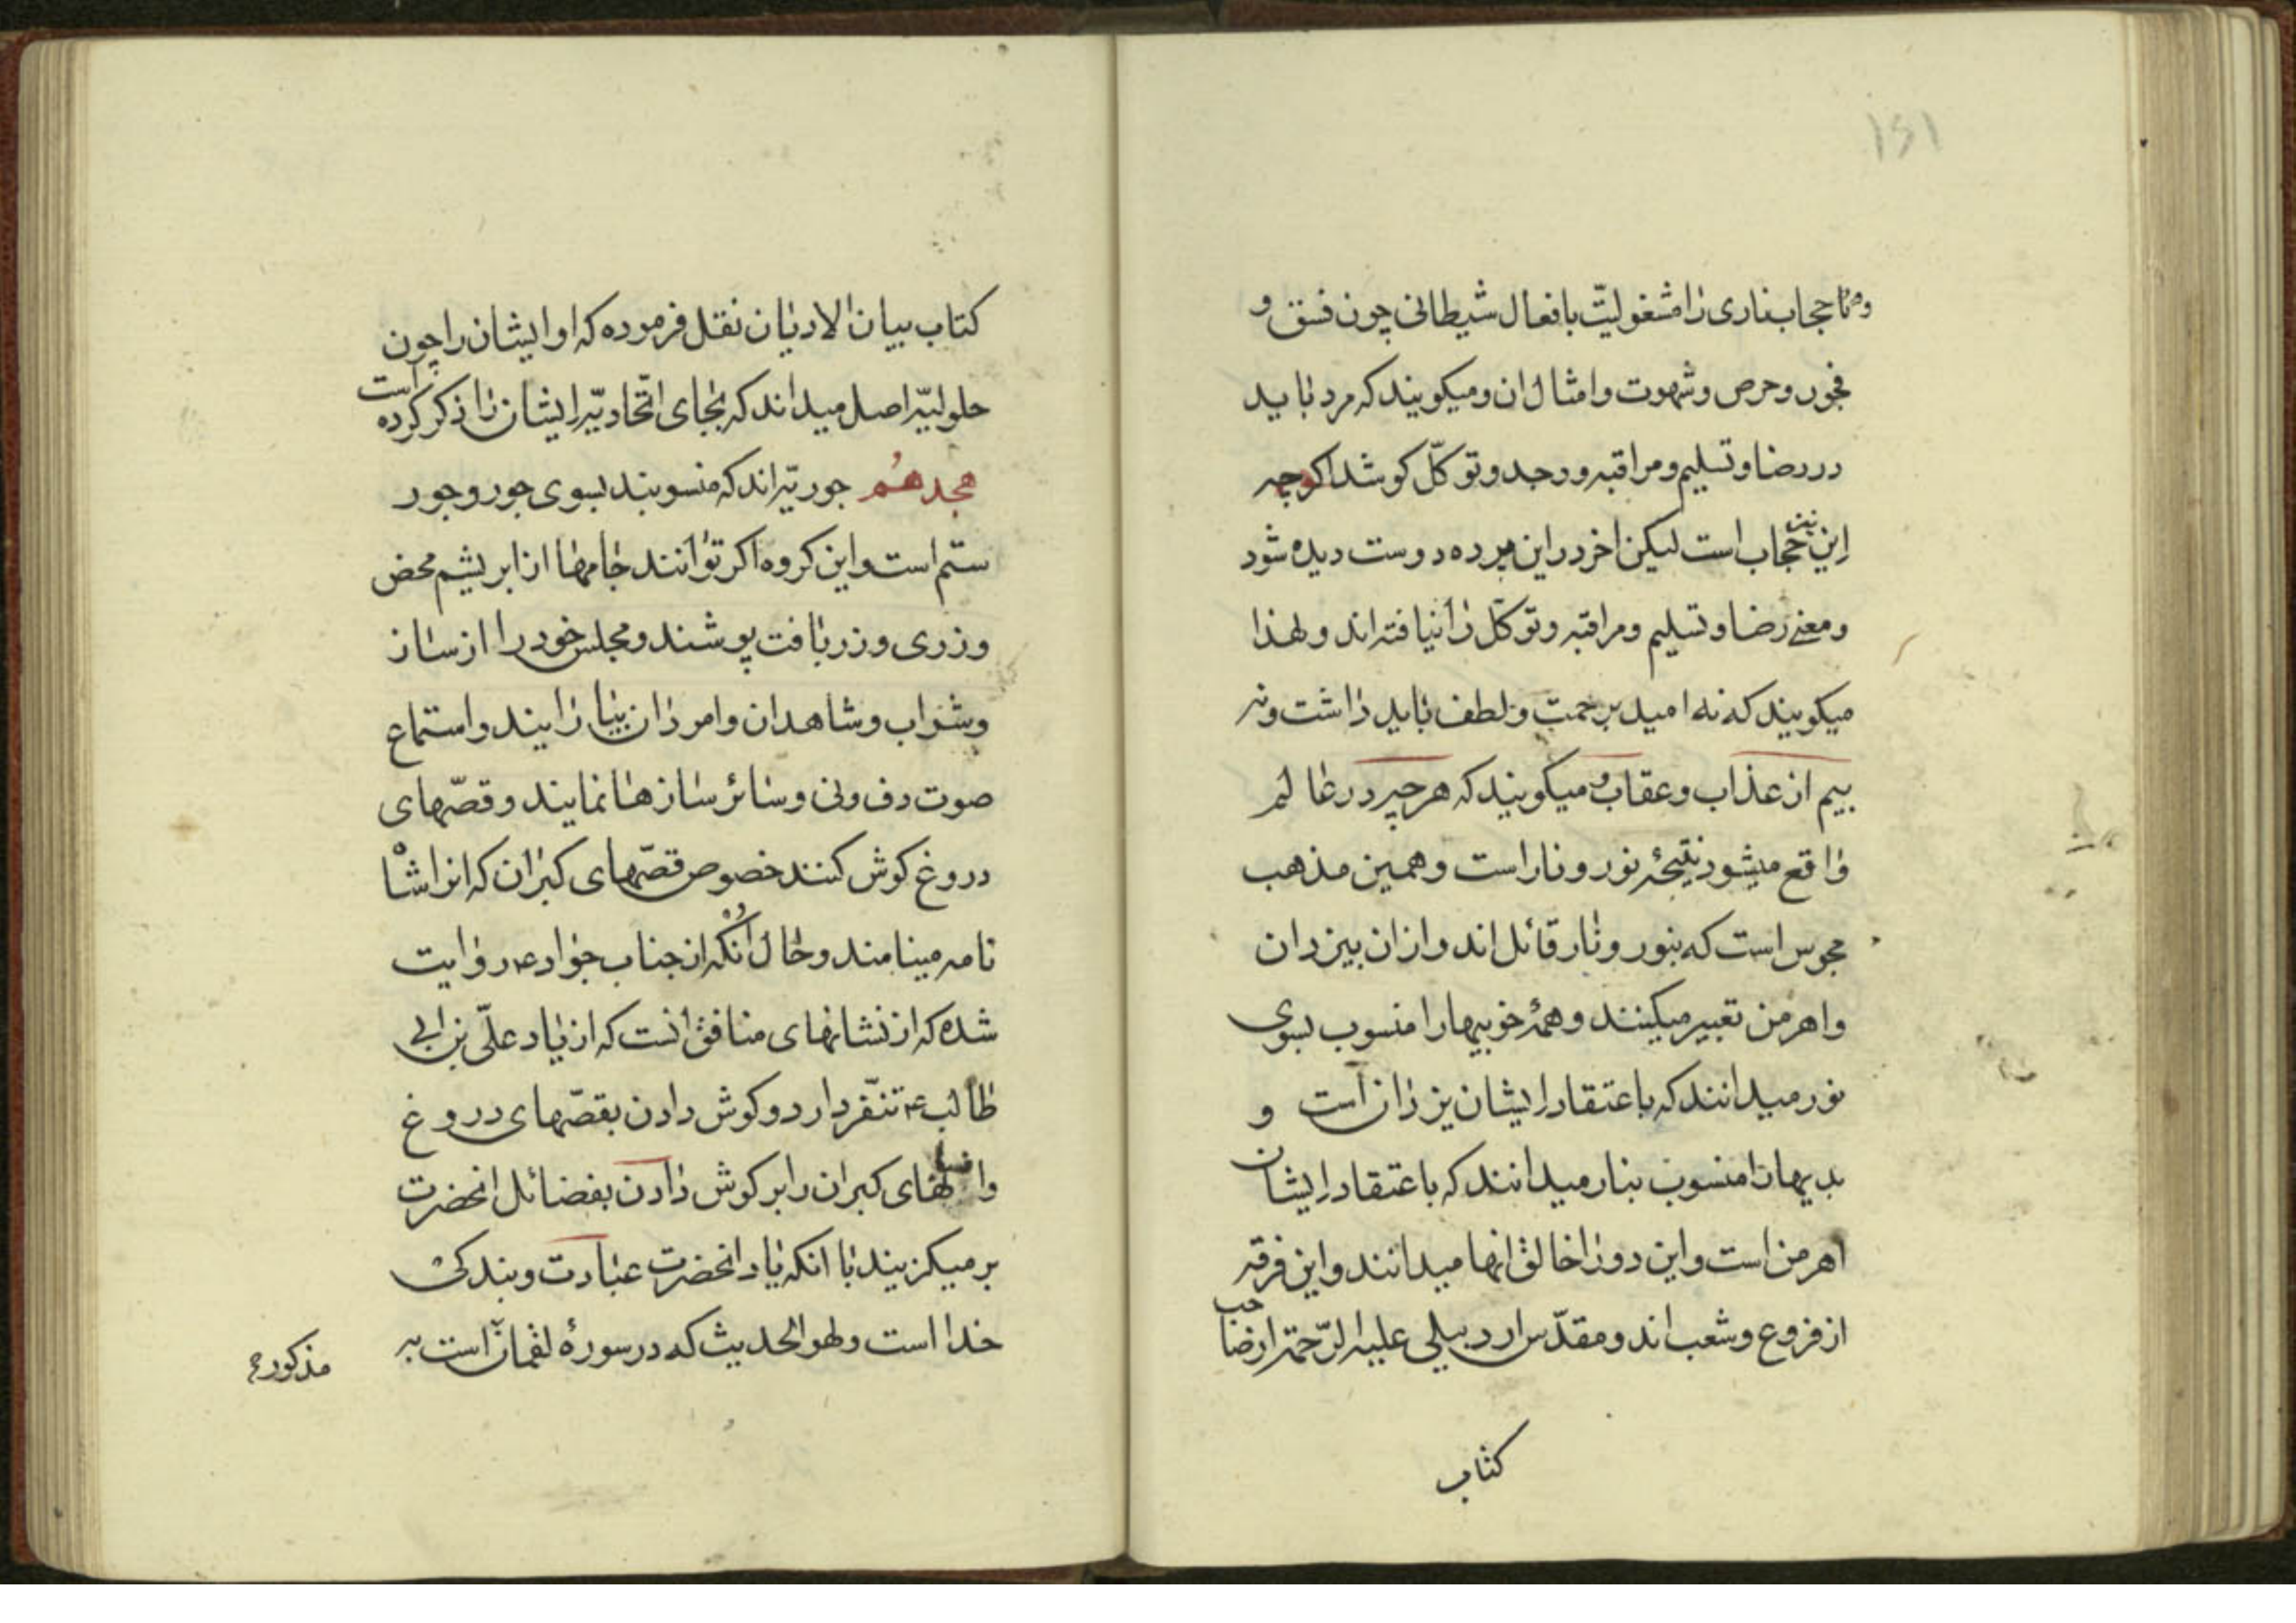 ۱۵۱
و حجاب ناری را مشغولیّت بافعال شیطانی چون فسق و
فجور و حرص و شهوت و امثال ان و میکویند که مرد باید
در رضا و تسلیم و مراقبه و وجد و توکّل کوشد اکرچه
این نیز حجاب است لیکن اخر در این پرده دوست دیده شود
و معنی رضا و تسلیم و مراقبه و توکّل را نیافته‌اند و لهذا
میکویند که نه امید برحمت و لطف باید داشت و نه
بیم از عذاب و عقاب و میکویند که هرچه در عالم
واقع میشود نتیجهٔ نور و نار است و همین مذهب
مجوس است که بنور و نار قائل‌اند و ازان بیزدان
و اهرمن تعبیر میکنند و همهٔ خوبیها را منسوب بسوی
نور میدانند که باعتقاد ایشان یزدان است و
بدیها را منسوب بنار میدانند که باعتقاد ایشان
اهرمن است و این دو را خالق انها میدانند و این فرقه
از فروع و شعب‌اند و مقدّس اردبیلی علیه الرّحمة از صاحب
کتاب
کتاب بیان الادیان نقل فرموده که او ایشان را چون
حلولیّه اصل میداند که بجای اتّحادیّه ایشان را ذکر کرده است
هجدهُم جوریّه‌اند که منسوبند بسوی جور و جور
ستم است و این کروه اکر توانند جامها از ابریشم محض
و زری و زربافت پوشند و مجلس خود را از ساز
و شراب و شاهدان و امردان بیارایند و استماع
صوت دف و نی و سائر سازها نمایند و قصّهای
دروغ کوش کنند خصوص قصّهای کبران که انرا شاه
نامه مینامند و حال انکه از جناب جواد ع روایت
شده که از نشانهای منافق انست که از یاد علّی بن ابی
طالب ع تنفّر دارد و کوش دادن بقصّهای دروغ
و افسانهای کبران را بر کوش دادن بفضائل انحضرت
بر میکزیند با انکه یاد انحضرت عبادت و بندکی
خدا است و لهو الحدیث که در سورهٔ لقمان است به
مذکوره